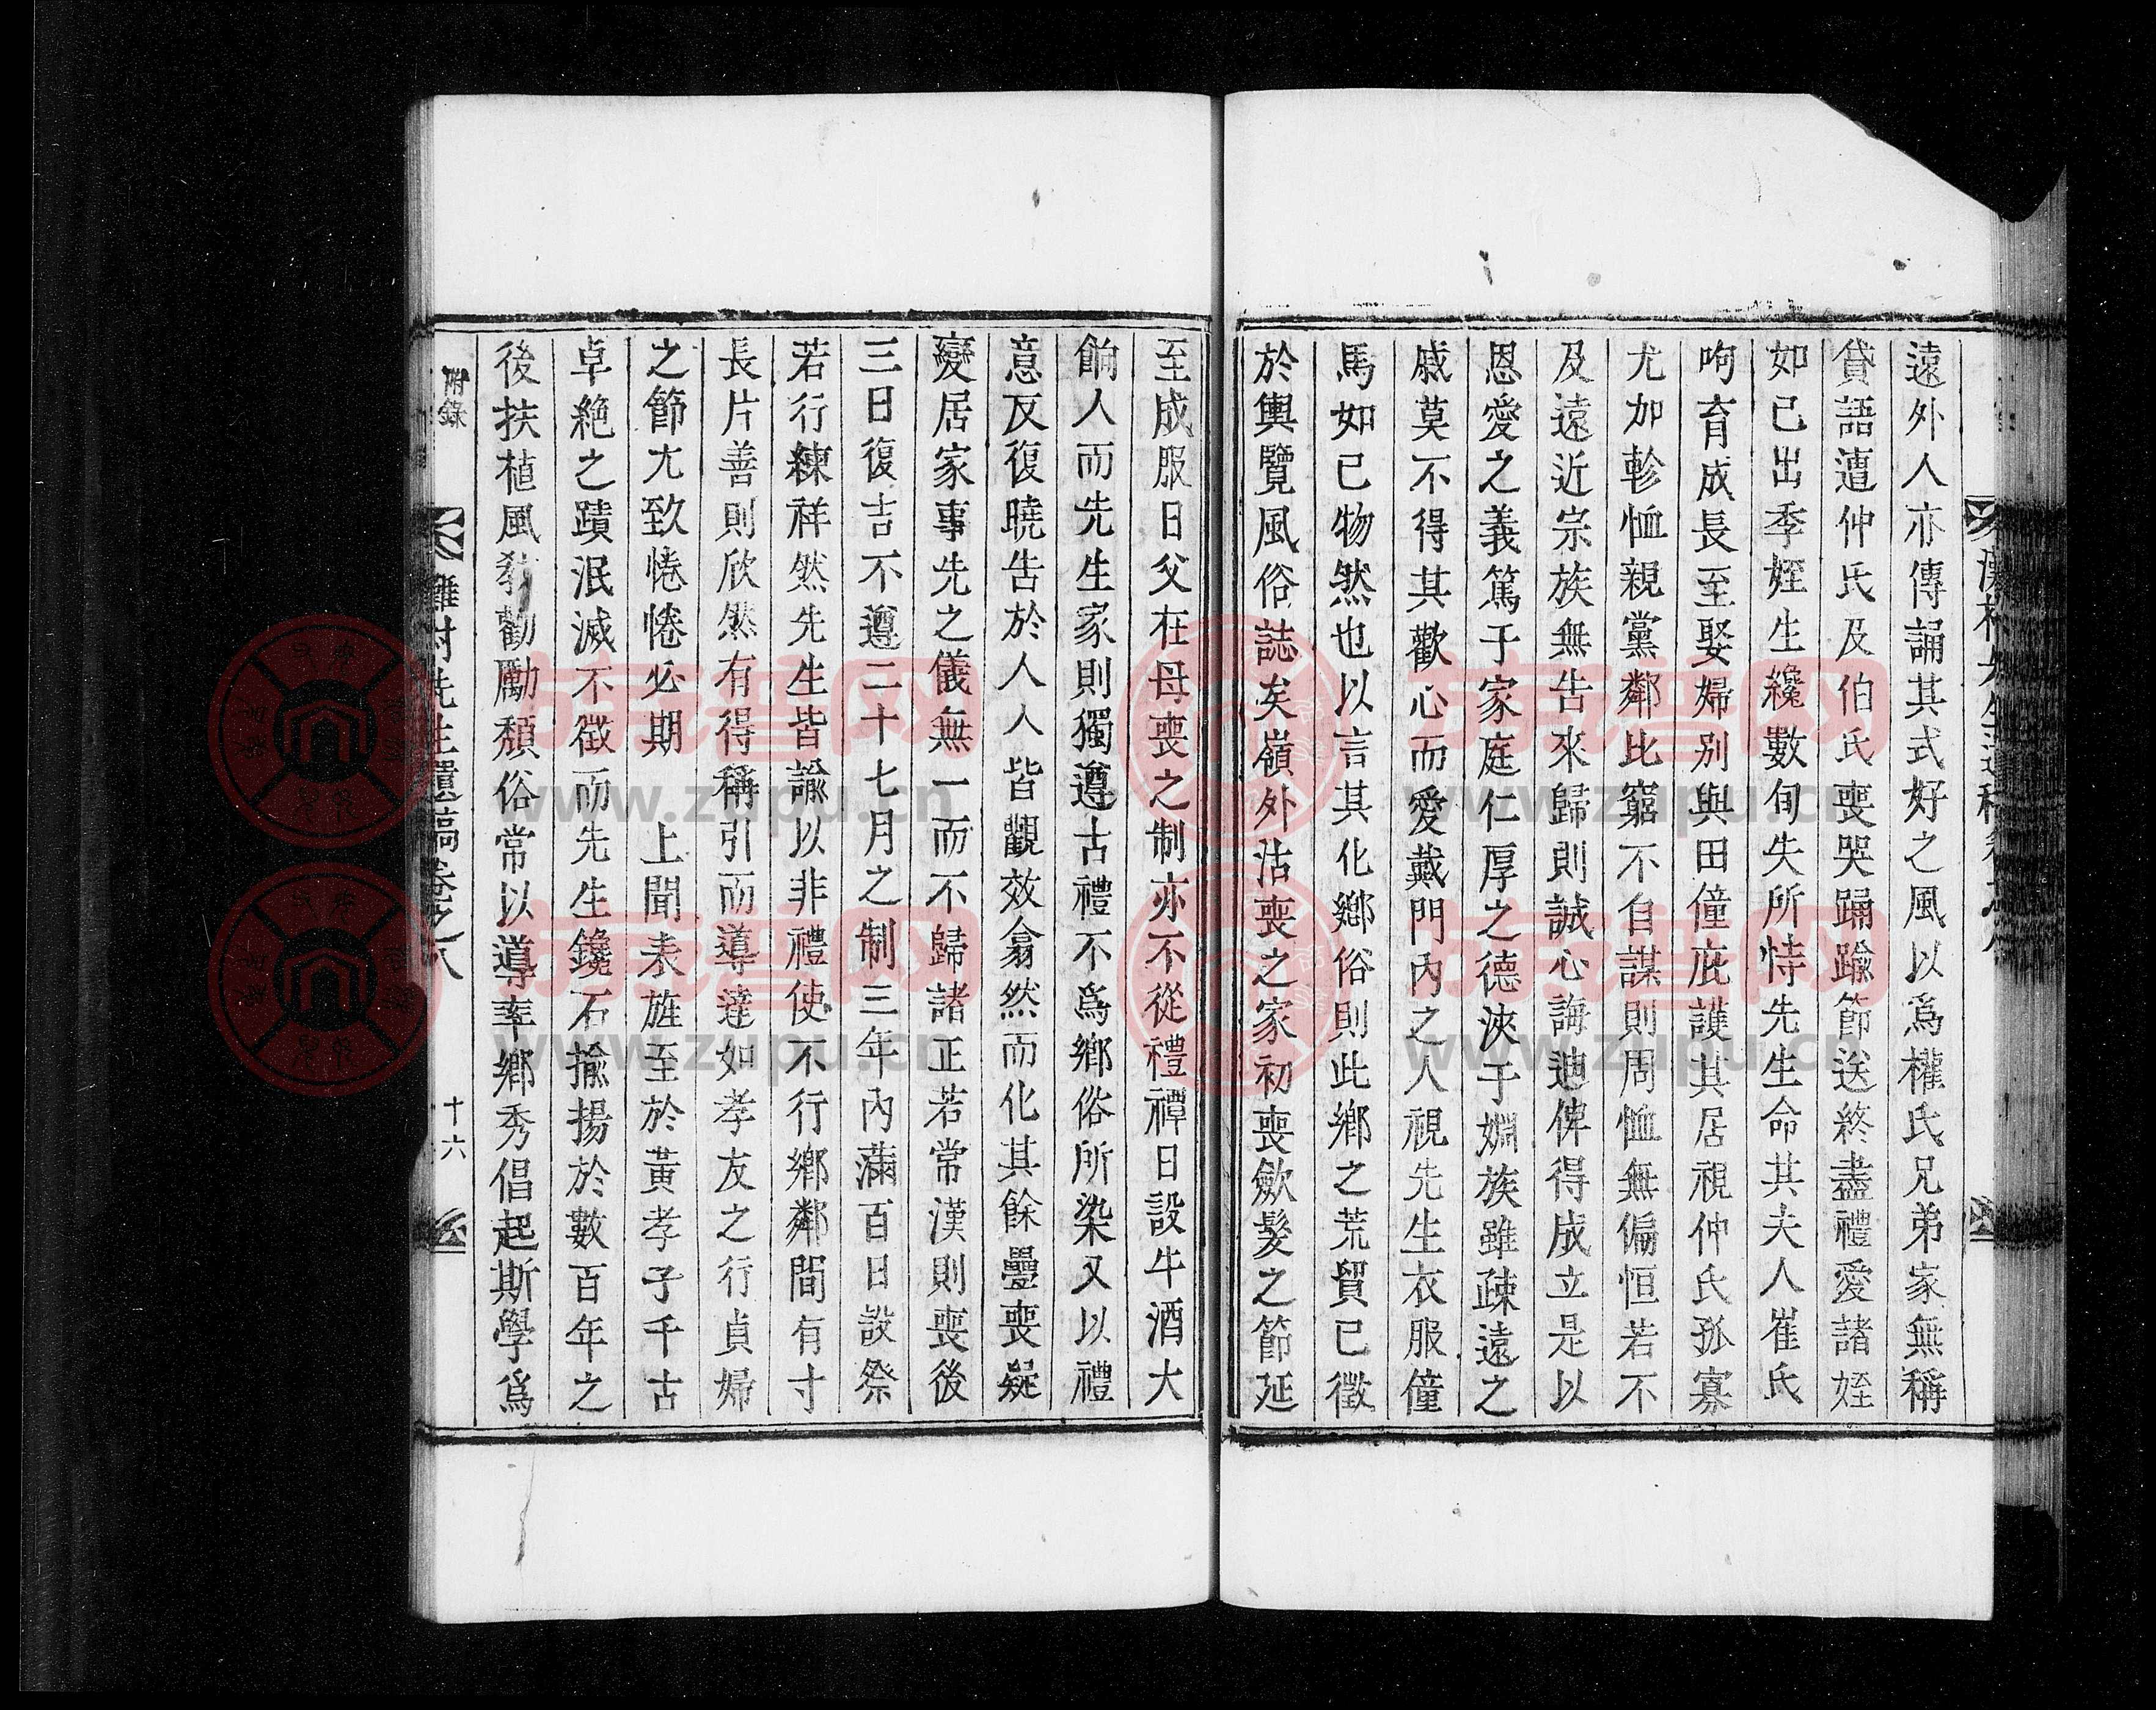 遠外人亦傳誦其式好之風以爲權氏兄弟家無稱
貸語遭仲氏及伯氏喪哭踊踰節送終盡禮愛諸姪
如己出季姪生纔數旬失所恃先生命其夫人崔氏
呴育成長至娶婦別與田僮庇護其居視仲氏孤寡
尤加軫恤親黨鄰比窮不自謀則周恤無偏恒若不
及遠近宗族無告來歸則誠心誨迪俾得成立是以
恩愛之義篤于家庭仁厚之德浹于婣族雖疎遠之
戚莫不得其歡心而愛戴門內之人視先生衣服僮
馬如已物然也以言其化鄉俗則此鄉之荒貿已徵
於輿覽風俗誌矣嶺外沽喪之家初喪歛髮之節延
至成服日父在母喪之制亦不從禮禫日設牛酒大
餉人而先生家則獨遵古禮不爲鄉俗所染又以禮
意反復曉告於人人皆觀效翕然而化其餘疊喪疑
變居家事先之儀無一而不歸諸正若常漢則喪後
三日復吉不遵二十七月之制三年內滿百日設祭
若行練祥然先生皆諭以非禮使不行鄉鄰間有寸
長片善則欣然有得稱引而導達如孝友之行貞婦
之節尤致惓惓必期 上聞表旌至於黃孝子千古
卓絶之蹟泯滅不徵而先生鑱石揄揚於數百年之
後扶植風敎勸勵頹俗常以導率鄉秀倡起斯學爲
附錄 灘村先生遺稿卷之八 十六
www.zupu.cn
www.zupu.cn
www.zupu.cn
www.zupu.cn